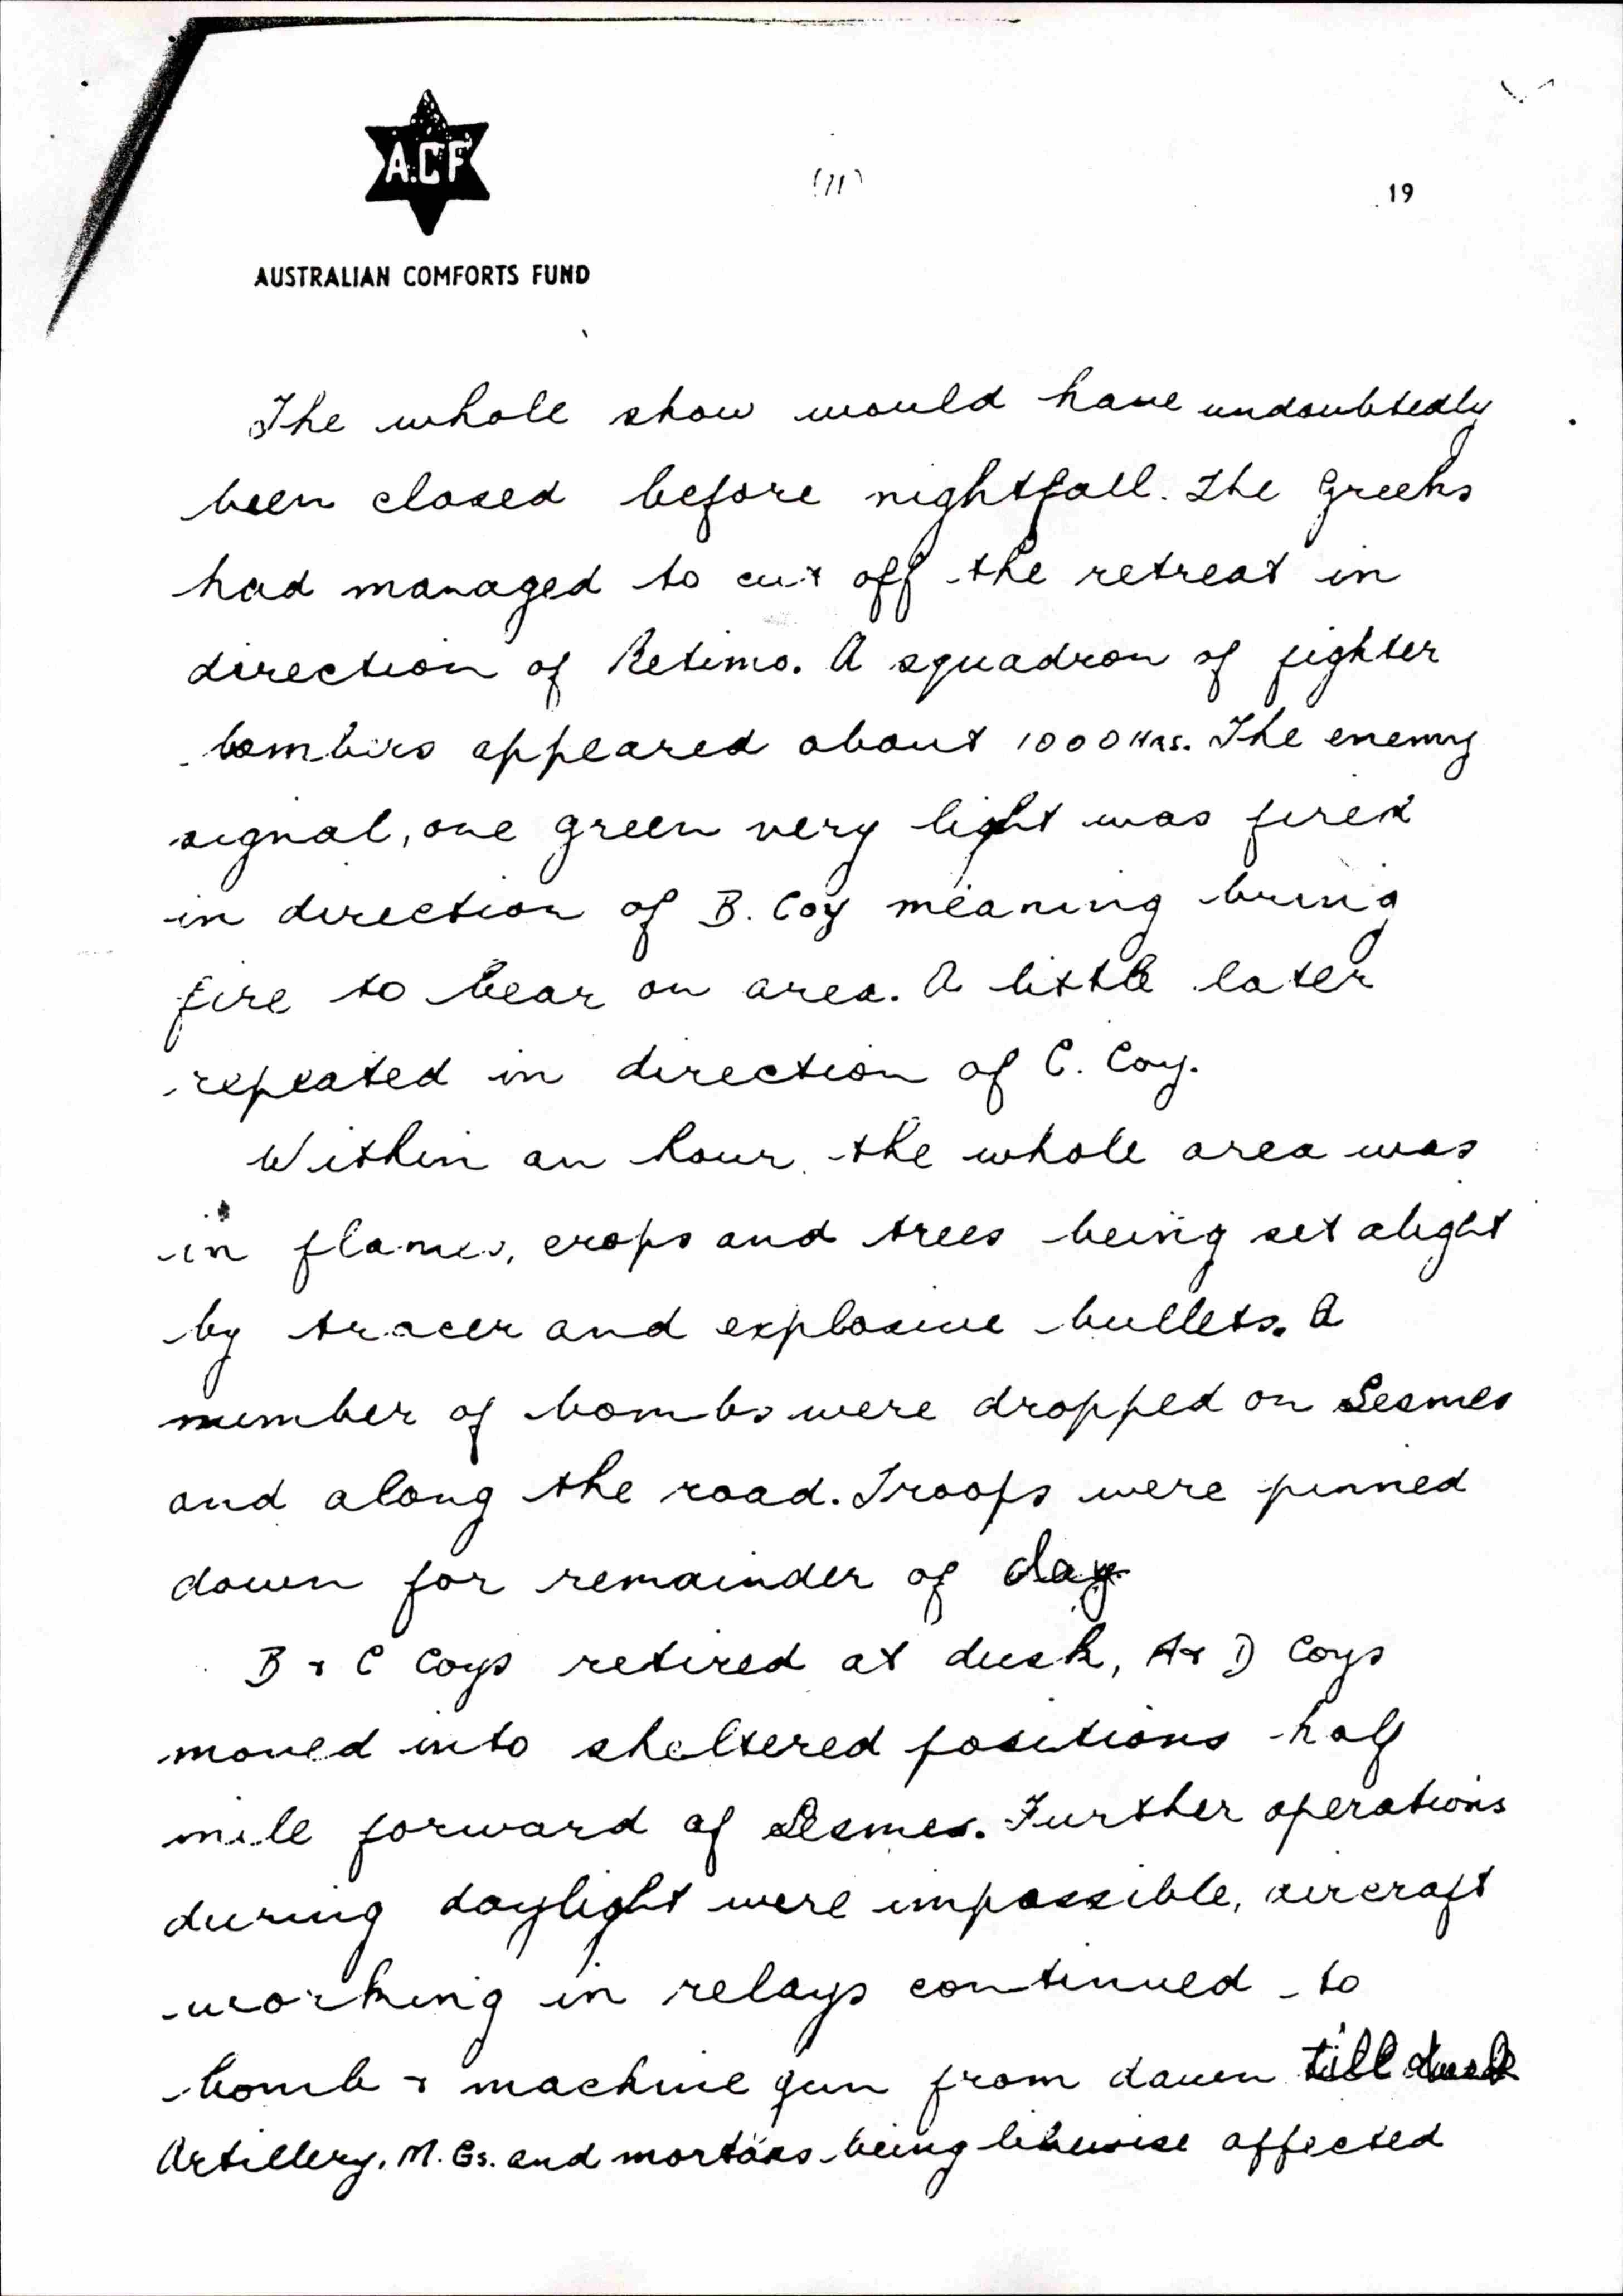 A.C F
(11)
19
AUSTRALIAN COMFORTS FUND
The whole show would have undoubtedly
been closed before nightfall. The Greeks
had managed to cut off the retreat in
direction of Retimo. A squadron of fighter
bombers appeared about 1000 HRS. The enemy
signal, one green very light was fired
in direction of B. Coy meaning bring
fire to bear on area. A little later
repeated in direction of C. Coy.
Within an hour the whole area was
in flames, crops and trees being set alight
by tracer and explosive bullets. A
number of bombs were dropped on Sesmes
and along the road. Troops were pinned
down for remainder of day
B & C Coys retired at dusk, A & D Coys
moved into sheltered positions half
mile forward of Sesmes. Further operations
during daylight were impossible, aircraft
working in relays continued to
bomb & machine gun from dawn till dusk
Artillery, M. Gs. and mortars being likewise affected